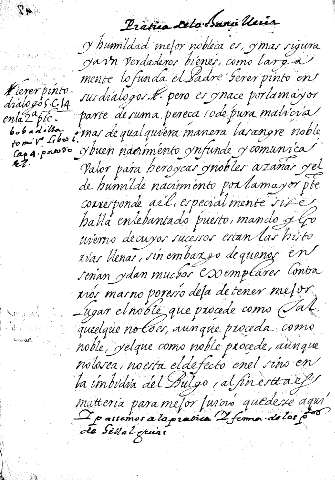 Pratica de la
y humildad mejor nobleca es, y mas sigura
y a un verdaderos bienes, como larga
mente lo funda el Padre herer pinto en
sus dialogos. pero es ynace por la mayor
parte de suma pereca i o de pura malicia
mas de qualquiera manera la sangre noble
y buen nacimiento ynfunde y comunica
Valor para heroycas y nobles açañas y el
de humilde nacimiento por la mayor pte
corresponde a el, especialmente si se
halla en lebantado puesto, mando y Go
uierno de cuyos sucessos estan las histo
rias llenas, sin embargo de que nos en
señan y dan muchos exemplares contra
rios mas no por eso deja de tener mejor
lugar el noble que procede como tal
que el que no lo es, aunque proceda como
noble, y el que como noble procede, aunque
no lo sea, no esta el defecto en el sino en
la imbidia del Bulgo, al fin esta es
matteria para mejor juicio quedese aqui
Y passemos a la pratica Y forma de los
herer pinto
dialogos
en la
bobadilla
lib
cap 4.